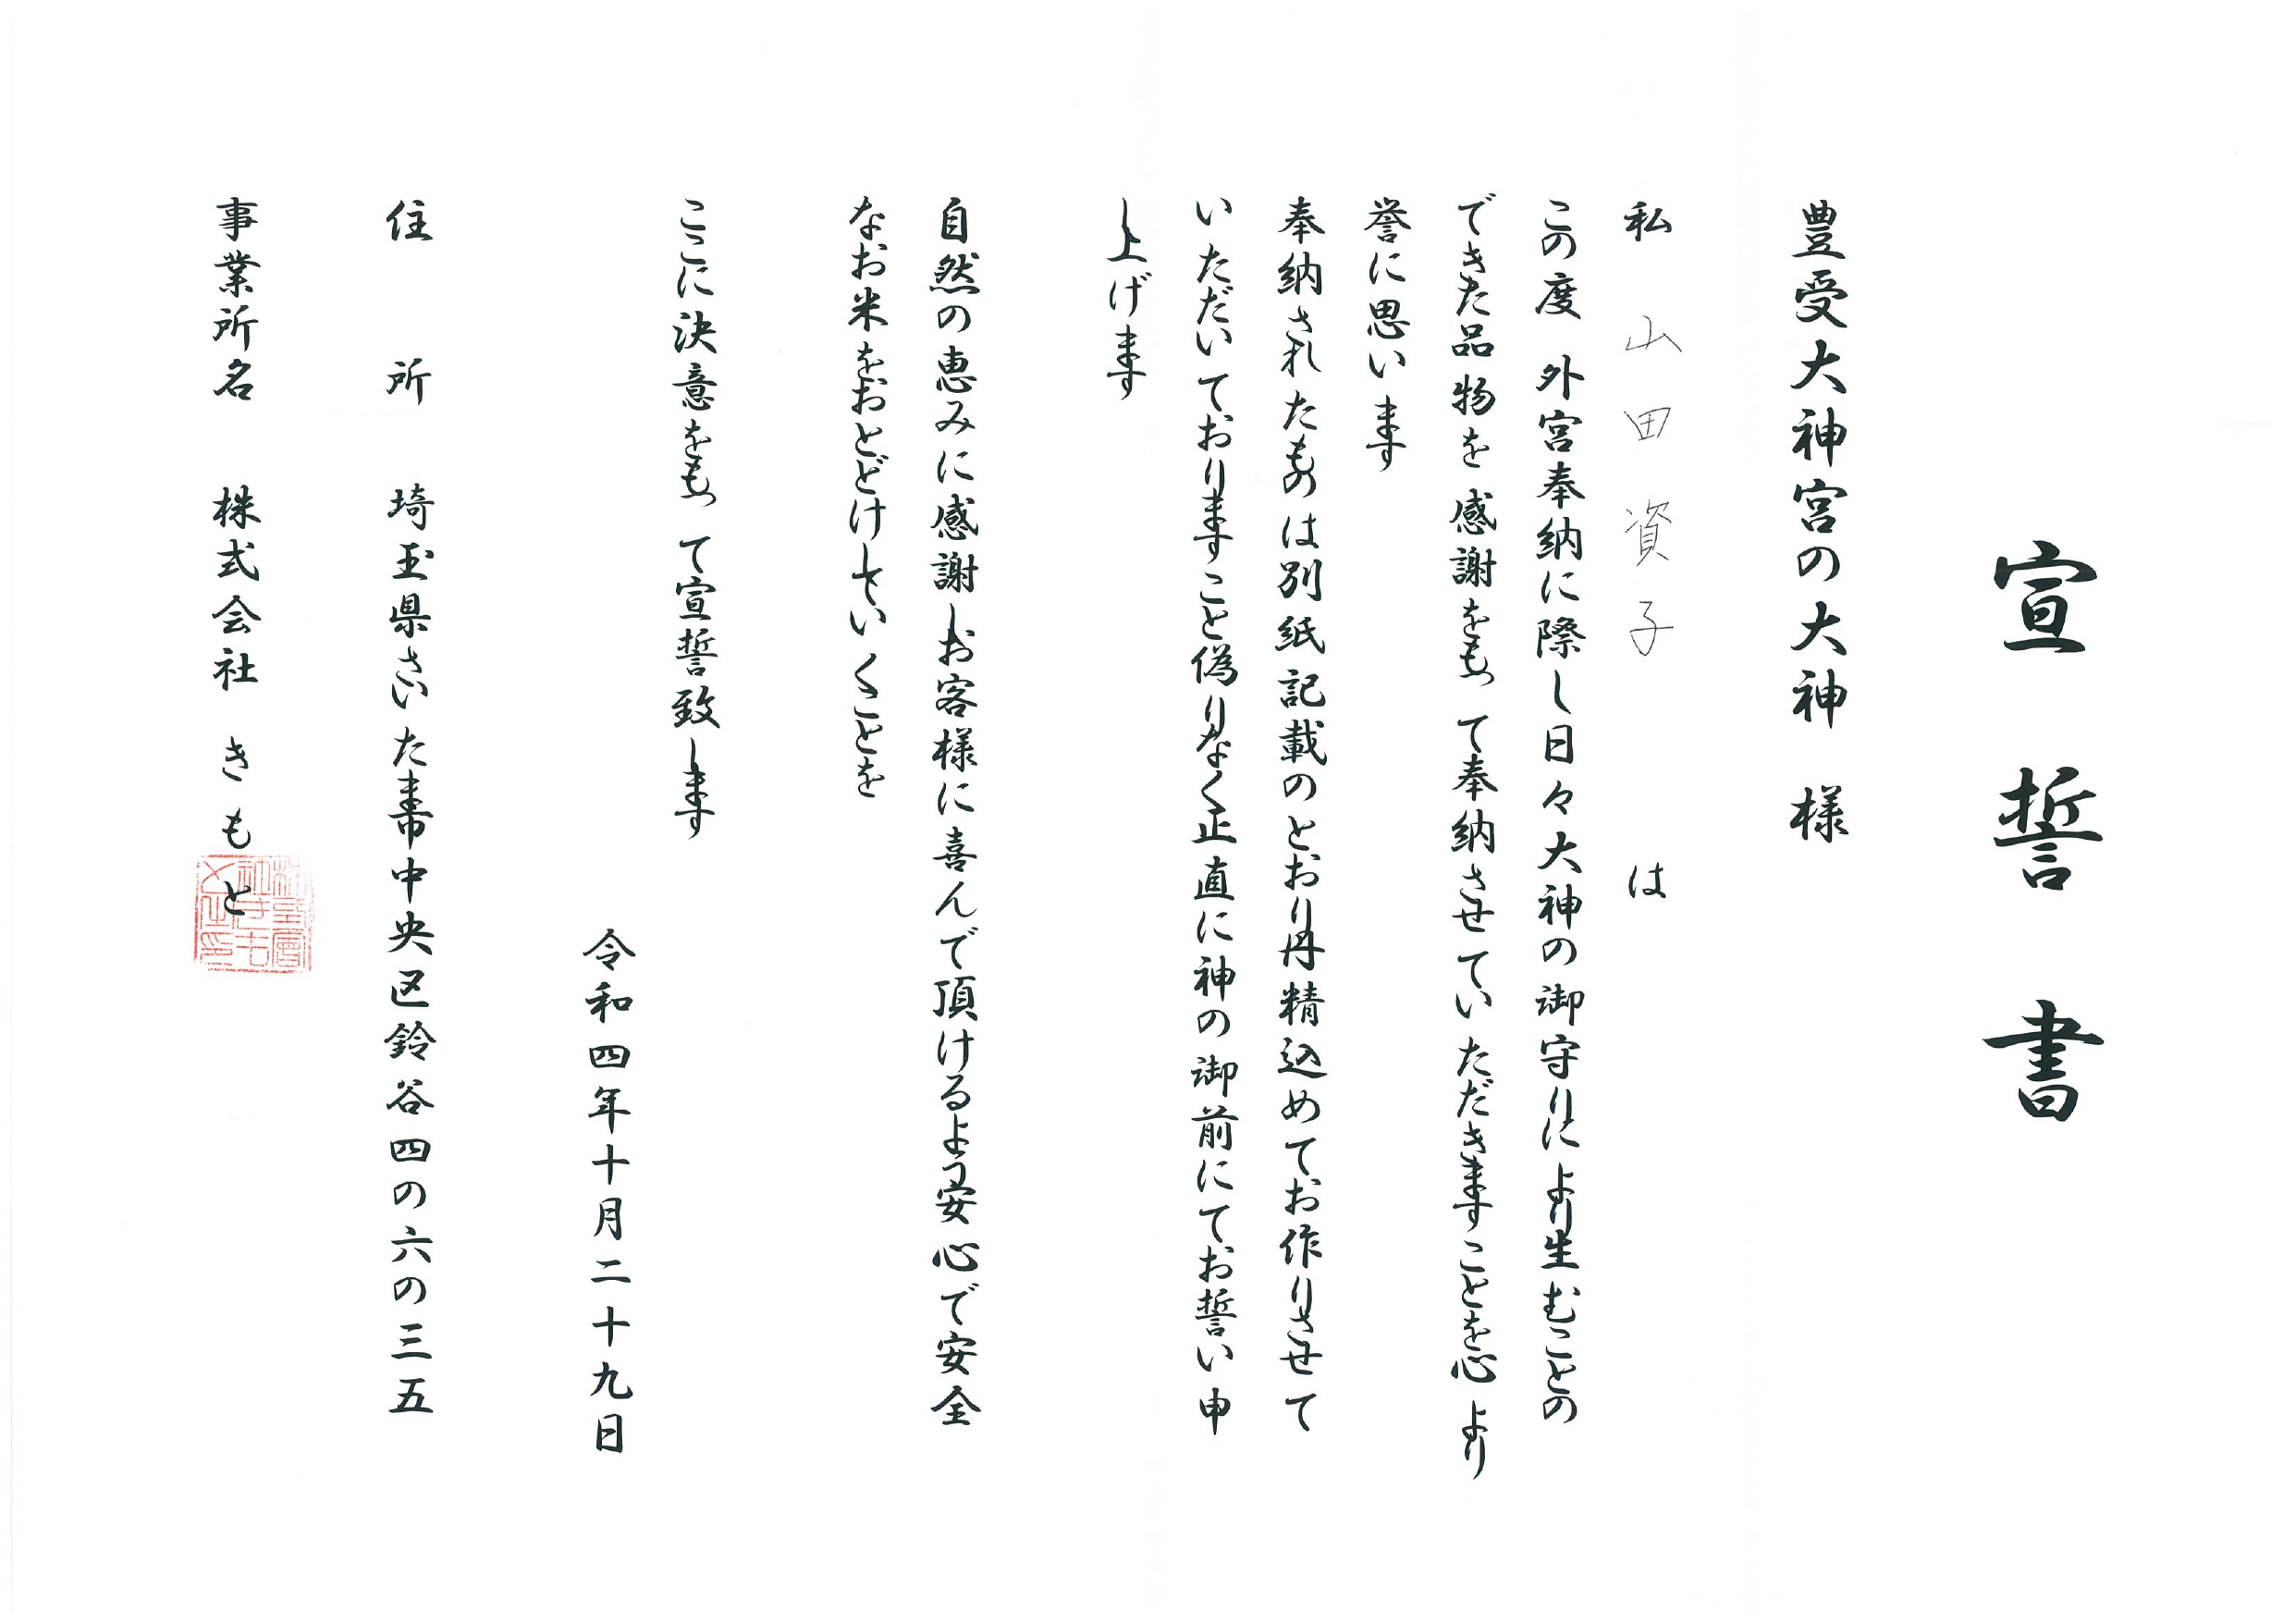 宣誓書
豊受大神宮の大神 様
私 山田資子 は
この度 外宮奉納に際し日々大神の御守りにより生むことの
できた品物を感謝をもって奉納させていただきますことを心より
誉に思います
奉納されたものは別紙記載のとおり丹精込めてお作りさせて
いただいておりますこと偽りなく正直に神の御前にてお誓い申
し上げます
自然の恵みに感謝しお客様に喜んで頂けるよう安心で安全
なお米をおとどけしていくことを
ここに決意をもって宣誓致します
令和四年十月二十九日
住所 埼玉県さいたま市中央区鈴谷四の六の三五
事業所名 株式会社 きもと